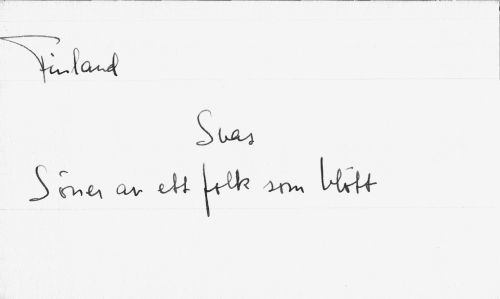 Finland
Svas
Söner av ett folk som blött